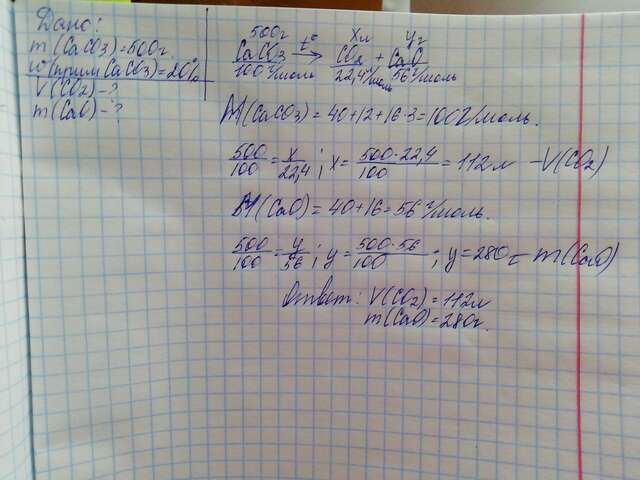 Дано:
m(CaCO3)=500г
w(прим CaCO3)=20%
V(CO2)-?
m(CaO)-?
500г xл yг
CaCO3 t° → CO2 + CaO
100г/моль 22,4л/моль 56г/моль
M(CaCO3)=40+12+16·3=100г/моль.
500/100=x/22,4; x=500·22,4/100=112л -V(CO2)
M(CaO)=40+16=56г/моль.
500/100=y/56; y=500·56/100; y=280г m(CaO)
Ответ: V(CO2)=112л
m(CaO)=280г.